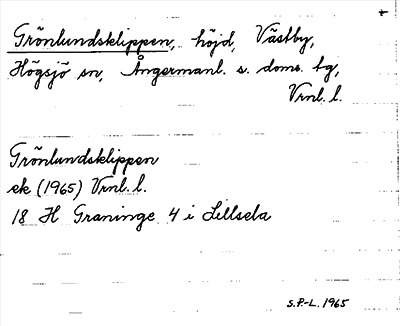 Grönlundsklippen, höjd, Västby,
Högsjö sn, Ångermanl. s. doms. tg,
Vrnl. l.
Grönlundsklippen
ek (1965) Vrnl. l.
18 H Graninge 4 i Lillsela
S.P.-L. 1965